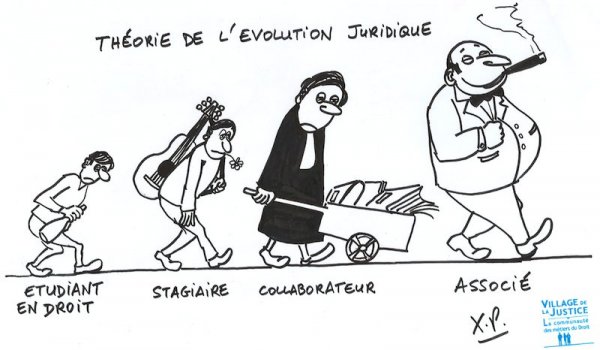 THÉORIE DE L'EVOLUTION JURIDIQUE
ETUDIANT
EN DROIT
STAGIAIRE
COLLABORATEUR
ASSOCIÉ
X.P.
VILLAGE DE
LA JUSTICE
La communauté
des métiers du Droit